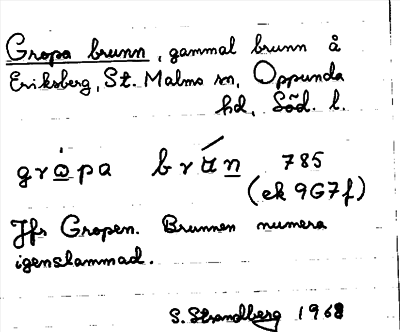 Gropa brunn, gammal brunn å
Eriksberg, St. Malms sn, Oppunda
hd, Söd. l.
785
(ek 9G7f)
Jfr Gropen. Brunnen numera
igenslammad.
S. Strandberg 1968